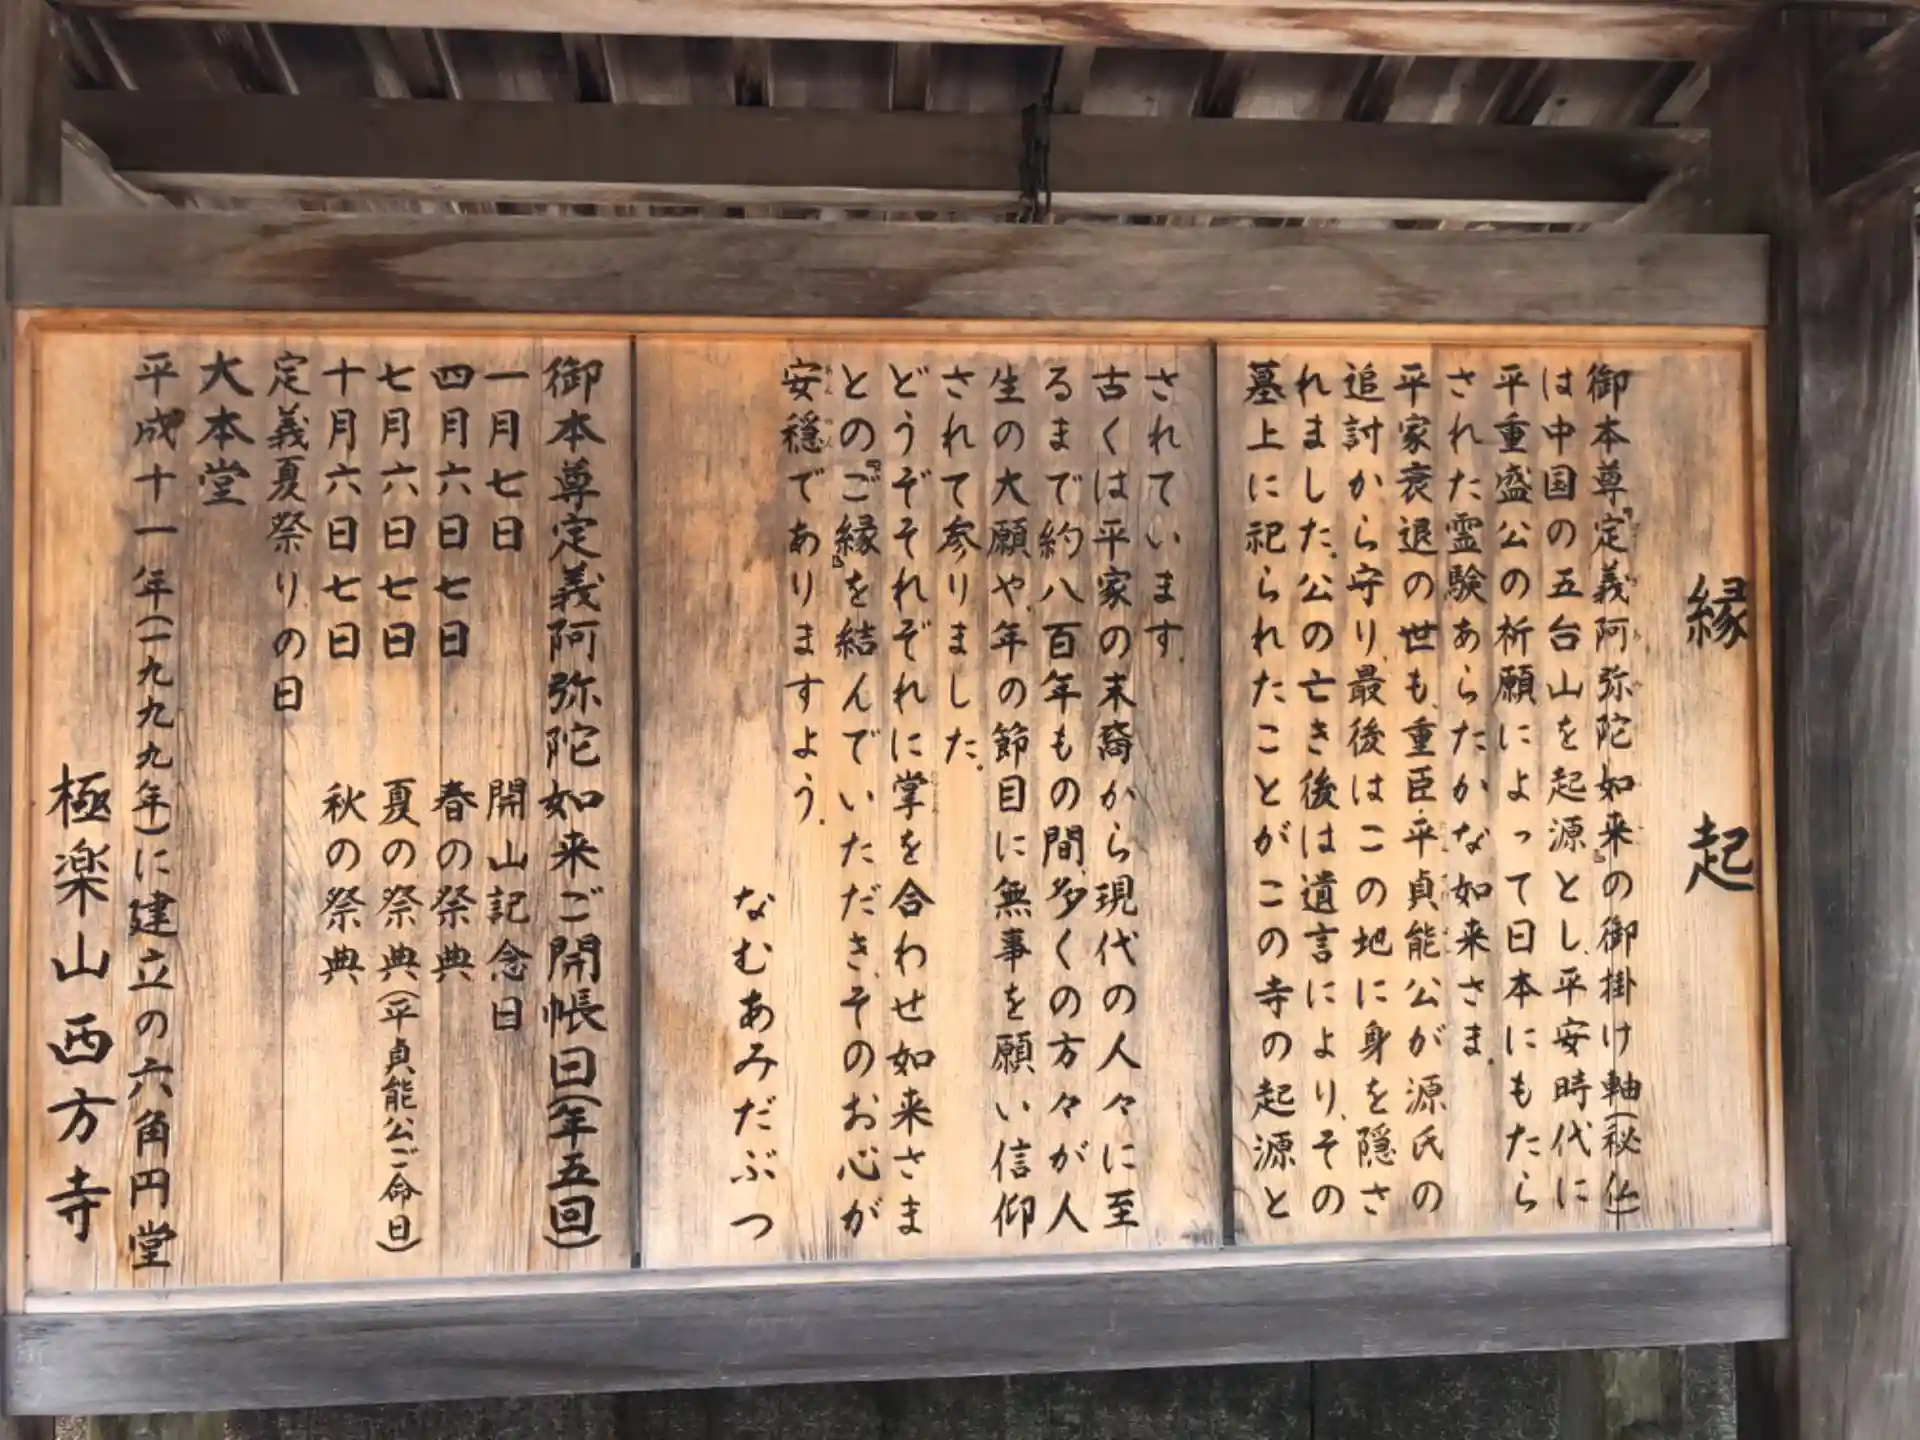 縁起
御本尊『定義阿弥陀如来』の御掛け軸(秘仏)
は中国の五台山を起源とし、平安時代に
平重盛公の祈願によって日本にもたら
された霊験あらたかな如来さま。
平家衰退の世も、重臣・平貞能公が源氏の
追討から守り、最後はこの地に身を隠さ
れました。公の亡き後は遺言により、その
墓上に祀られたことがこの寺の起源と
されています。
古くは平家の末裔から現代の人々に至
るまで約八百年もの間、多くの方々が人
生の大願や、年の節目に無事を願い信仰
されて参りました。
どうぞそれぞれに掌を合わせ如来さま
との『ご縁』を結んでいただき、そのお心が
安穏でありますよう。
なむあみだぶつ
御本尊定義阿弥陀如来ご開帳日(年五回)
一月七日 開山記念日
四月六日七日 春の祭典
七月六日七日 夏の祭典(平貞能公ご命日)
十月六日七日 秋の祭典
定義夏祭りの日
大本堂
平成十一年(一九九九年)に建立の六角円堂
極楽山西方寺